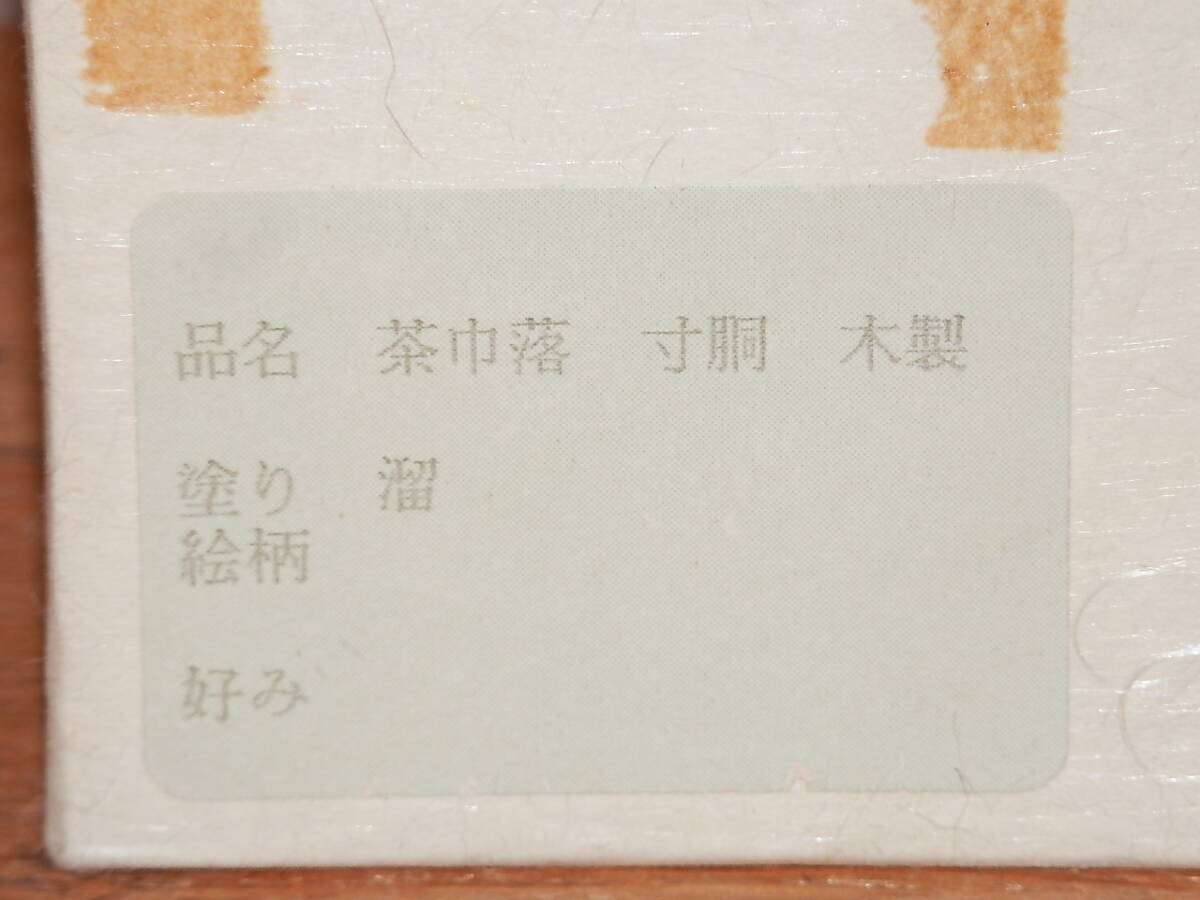 品名　茶巾落　寸胴　木製
塗り　溜
絵柄
好み